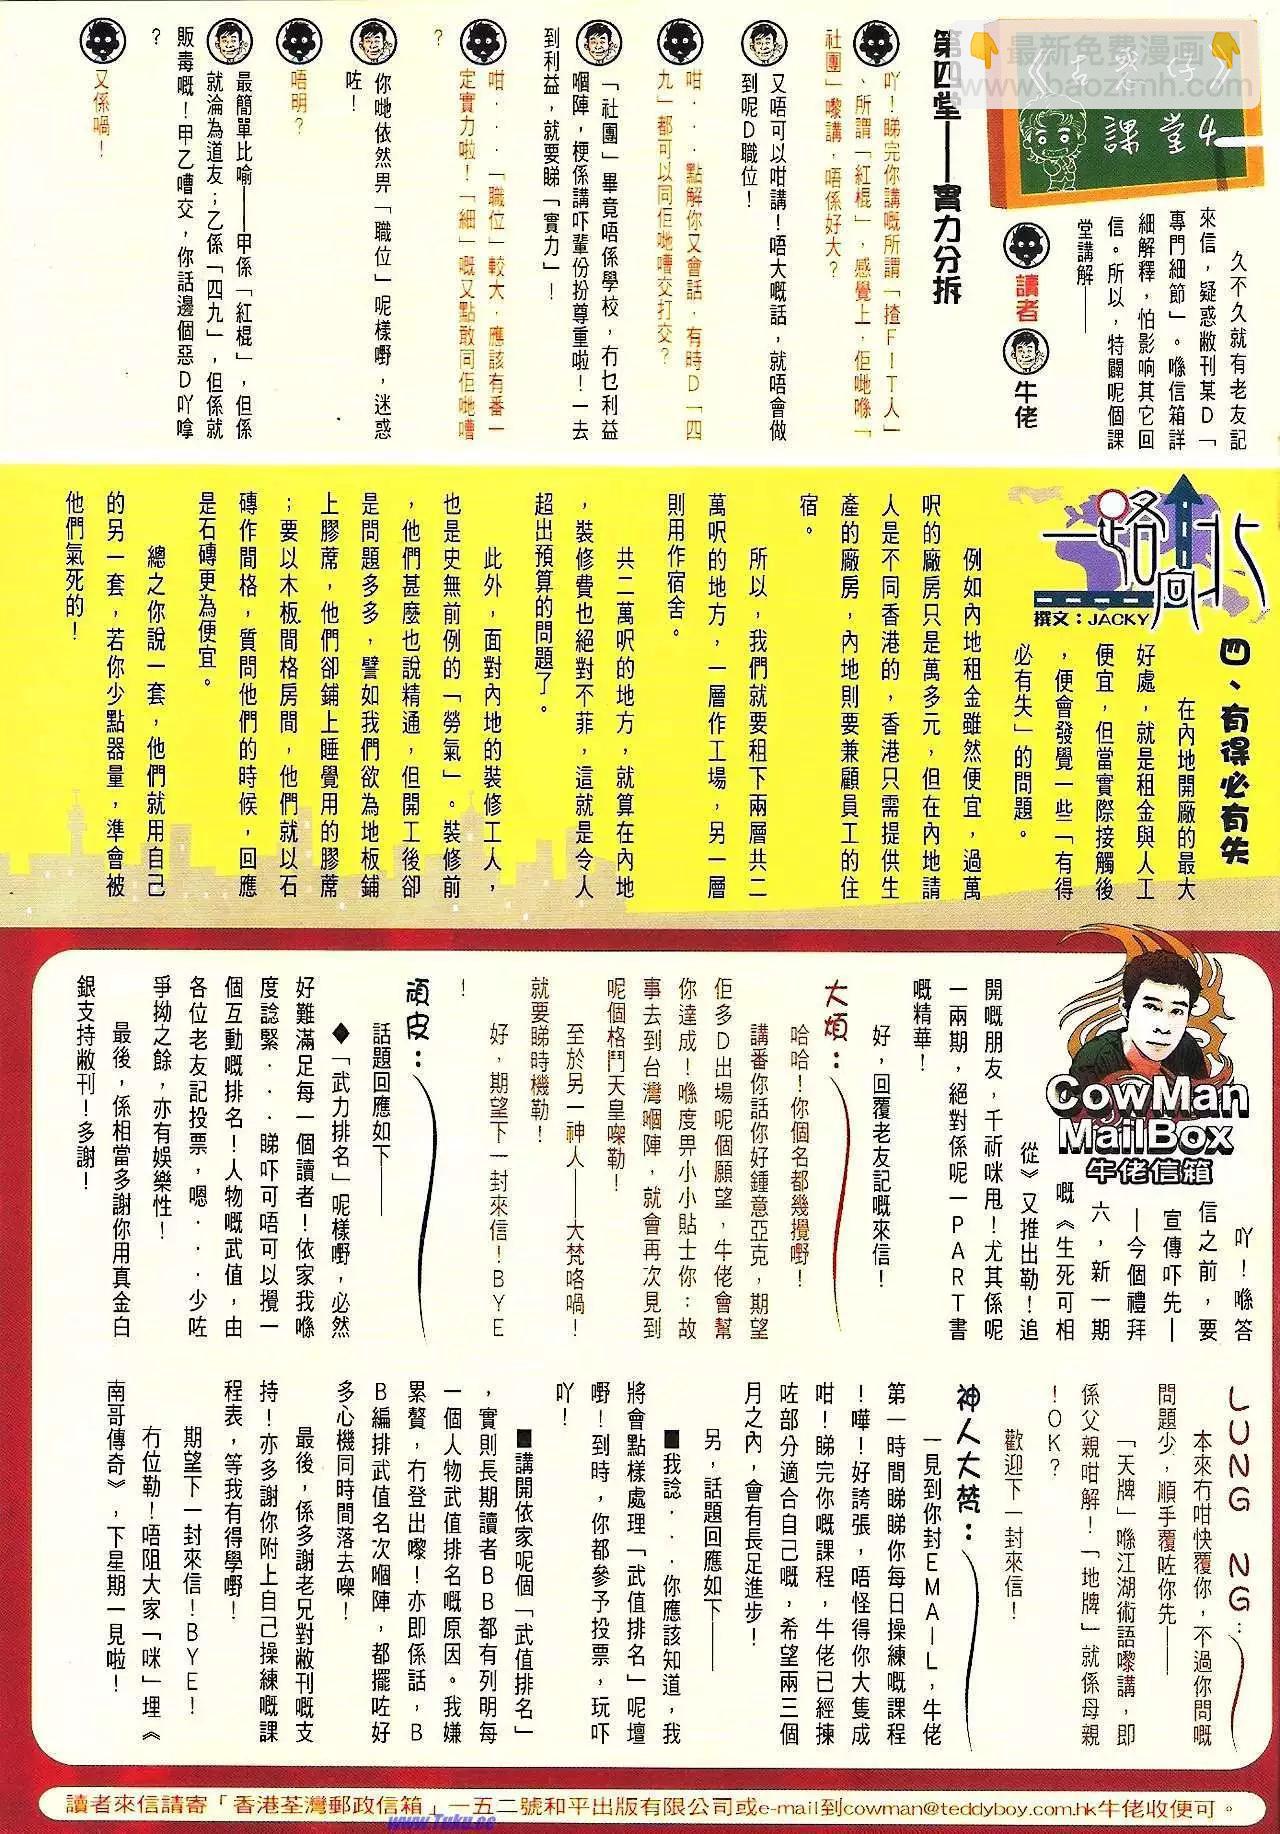 最新免費漫画
www.baozimh.com
《古惑仔》
課堂4
久不久就有老友記
來信，疑惑敝刊某Ｄ「
專門細節」。喺信箱詳
細解釋，怕影响其它回
信。所以，特闢呢個課
堂講解——
讀者
牛佬
第四堂——實力分拆
吖！睇完你講嘅所謂「揸ＦＩＴ人」
、所謂「紅棍」，感覺上．佢哋喺「
社團」嚟講．唔係好大？
又唔可以咁講！唔大嘅話，就唔會做
到呢Ｄ職位！
咁．．．點解你又會話．有時Ｄ「四
九」都可以同佢哋嘈交打交？
「社團」畢竟唔係學校，冇乜利益
嗰陣，梗係講吓輩份扮尊重啦！一去
到利益，就要睇「實力」！
咁．．．「職位」較大．應該有番一
定實力啦！「細」嘅又點敢同佢哋嘈
？
你哋依然畀「職位」呢樣嘢，迷惑
咗！
唔明？
最簡單比喻——甲係「紅棍」，但係
就淪為道友；乙係「四九」，但係就
販毒嘅！甲乙嘈交，你話邊個惡Ｄ吖嗱
？
又係喎！
一路向北
撰文：JACKY
四、有得必有失
在內地開廠的最大
好處，就是租金與人工
便宜，但當實際接觸後
，便會發覺一些「有得
必有失」的問題。
例如內地租金雖然便宜，過萬
呎的廠房只是萬多元，但在內地請
人是不同香港的，香港只需提供生
產的廠房，內地則要兼顧員工的住
宿。
所以，我們就要租下兩層共二
萬呎的地方，一層作工場，另一層
則用作宿舍。
共二萬呎的地方，就算在內地
，裝修費也絕對不菲，這就是令人
超出預算的問題了。
此外，面對內地的裝修工人，
也是史無前例的「勞氣」。裝修前
，他們甚麼也說精通，但開工後卻
是問題多多，譬如我們欲為地板鋪
上膠蓆，他們卻鋪上睡覺用的膠蓆
；要以木板間格房間，他們就以石
磚作間格，質問他們的時候，回應
是石磚更為便宜。
總之你說一套，他們就用自己
的另一套，若你少點器量，準會被
他們氣死的！
CowMan
MailBox
牛佬信箱
吖！喺答
信之前，要
宣傳吓先—
—今個禮拜
六，新一期
嘅《生死可相
從》又推出勒！追
開嘅朋友，千祈咪甩！尤其係呢
一兩期，絕對係呢一ＰＡＲＴ書
嘅精華！
好，回覆老友記嘅來信！
大煩：
哈哈！你個名都幾攪嘢！
講番你話你好鍾意亞克，期望
佢多Ｄ出場呢個願望，牛佬會幫
你達成！喺度畀小小貼士你：故
事去到台灣嗰陣，就會再次見到
呢個格鬥天皇㗎勒！
至於另一神人——大梵咯喎！
就要睇時機勒！
好，期望下一封來信！ＢＹＥ
！
頑皮：
話題回應如下——
◆「武力排名」呢樣嘢，必然
好難滿足每一個讀者！依家我喺
度諗緊．．．睇吓可唔可以攪一
個互動嘅排名！人物嘅武值，由
各位老友記投票，嗯．．．少咗
爭拗之餘，亦有娛樂性！
最後，係相當多謝你用真金白
銀支持敝刊！多謝！
LUNG NG：
本來冇咁快覆你，不過你問嘅
問題少，順手覆咗你先——
「天牌」喺江湖術語嚟講，即
係父親咁解！「地牌」就係母親
！ＯＫ？
歡迎下一封來信！
神人大梵：
一見到你封ＥＭＡＩＬ，牛佬
第一時間睇睇你每日操練嘅課程
！嘩！好誇張，唔怪得你大隻成
咁！睇完你嘅課程，牛佬已經揀
咗部分適合自己嘅，希望兩三個
月之內，會有長足進步！
另，話題回應如下——
■我諗．．．你應該知道，我
將會點樣處理「武值排名」呢壇
嘢！到時，你都參予投票，玩吓
吖！
■講開依家呢個「武值排名」
，實則長期讀者ＢＢ都有列明每
一個人物武值排名嘅原因。我嫌
累贅，冇登出嚟！亦即係話，Ｂ
Ｂ編排武值名次嗰陣，都擺咗好
多心機同時間落去㗎！
最後，係多謝老兄對敝刊嘅支
持！亦多謝你附上自己操練嘅課
程表，等我有得學嘢！
期望下一封來信！ＢＹＥ！
冇位勒！唔阻大家「咪」埋《
南哥傳奇》，下星期一見啦！
讀者來信請寄「香港荃灣郵政信箱」一五二號和平出版有限公司或e-mail到cowman@teddyboy.com.hk牛佬收便可。
www.Tuku.cc